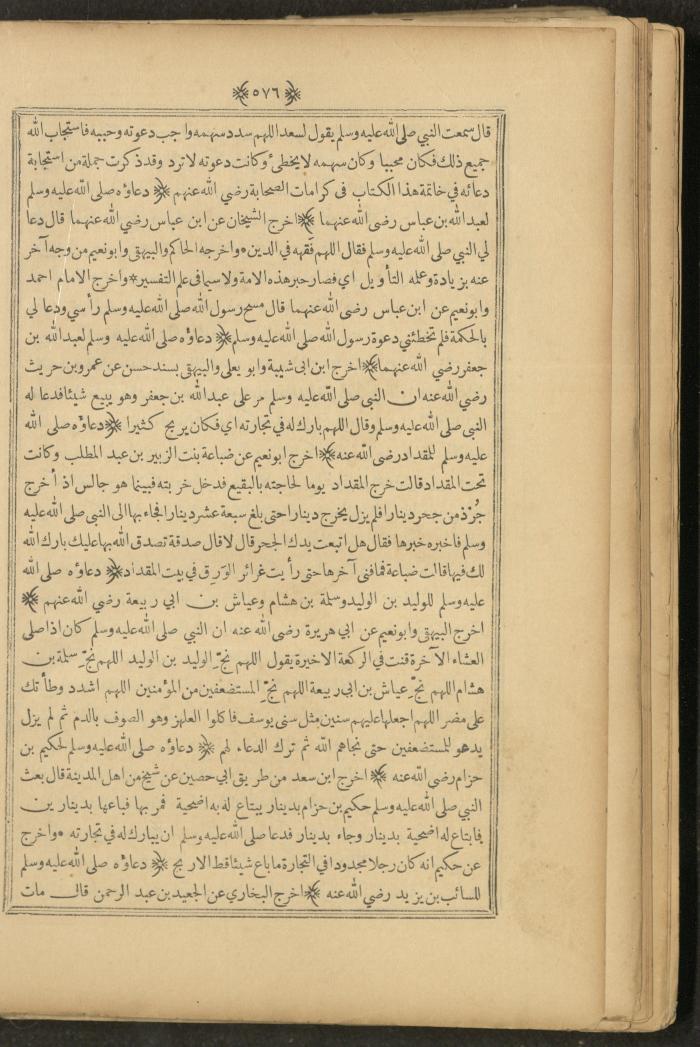 ﴿ ٥٧٦ ﴾
قال سمعت النبي صلى الله عليه وسلم يقول لسعد اللهم سدد سهمه واجب دعوته وحببه فاستجاب الله
جميع ذلك فكان محببا وكان سهمه لا يخطئ وكانت دعوته لا ترد وقد ذكرت جملة من استجابة
دعائه في خاتمة هذا الكتاب فى كرامات الصحابة رضي الله عنهم ﴿ دعاؤه صلى الله عليه وسلم
لعبد الله بن عباس رضى الله عنهما ﴾ اخرج الشيخان عن ابن عباس رضي الله عنهما قال دعا
لي النبي صلى الله عليه وسلم فقال اللهم فقهه في الدين * واخرجه الحاكم والبيهقي وابو نعيم من وجه آخر
عنه بزيادة وعلمه التأويل اي فصار حبر هذه الامة ولا سيما فى علم التفسير * واخرج الامام احمد
وابو نعيم عن ابن عباس رضى الله عنهما قال مسح رسول الله صلى الله عليه وسلم رأسي ودعا لي
بالحكمة فلم تخطئني دعوة رسول الله صلى الله عليه وسلم ﴿ دعاؤه صلى الله عليه وسلم لعبد الله بن
جعفر رضي الله عنهما ﴾ اخرج ابن ابى شيبة وابو يعلى والبيهقي بسند حسن عن عمرو بن حريث
رضى الله عنه ان النبي صلى الله عليه وسلم مر على عبد الله بن جعفر وهو يبيع شيئا فدعا له
النبي صلى الله عليه وسلم وقال اللهم بارك له في تجارته اي فكان يربح كثيرا ﴿ دعاؤه صلى الله
عليه وسلم للمقداد رضى الله عنه ﴾ اخرج ابو نعيم عن ضباعة بنت الزبير بن عبد المطلب وكانت
تحت المقداد قالت خرج المقداد يوما لحاجته بالبقيع فدخل خربته فبينما هو جالس اذ أخرج
جُرْذ من جحر دينارا فلم يزل يخرج دينارا حتى بلغ سبعة عشر دينارا فجاء بها الى النبي صلى الله عليه
وسلم فاخبره خبرها فقال هل اتبعت يدك الجحر قال لا قال صدقة تصدق الله بها عليك بارك الله
لك فيها قالت ضباعة فما فنى آخرها حتى رأيت غرائر الوَرِق في بيت المقداد ﴿ دعاؤه صلى الله
عليه وسلم للوليد بن الوليد وسلمة بن هشام وعياش بن ابي ربيعة رضي الله عنهم ﴾
اخرج البيهقي وابو نعيم عن ابي هريرة رضى الله عنه ان النبي صلى الله عليه وسلم كان اذا صلى
العشاء الآخرة قنت في الركعة الاخيرة يقول اللهم نجِّ الوليد بن الوليد اللهم نجِّ سلمة بن
هشام اللهم نجِّ عياش بن ابي ربيعة اللهم نجِّ المستضعفين من المؤمنين اللهم اشدد وطأتك
على مضر اللهم اجعلها عليهم سنين مثل سنى يوسف فاكلوا العلهز وهو الصوف بالدم ثم لم يزل
يدعو للمستضعفين حتى نجاهم الله ثم ترك الدعاء لهم ﴿ دعاؤه صلى الله عليه وسلم لحكيم بن
حزام رضى الله عنه ﴾ اخرج ابن سعد من طريق ابي حصين عن شيخ من اهل المدينة قال بعث
النبي صلى الله عليه وسلم حكيم بن حزام بدينار يبتاع له به اضحية فمر بها فباعها بدينارين
فابتاع له اضحية بدينار وجاء بدينار فدعا صلى الله عليه وسلم ان يبارك له في تجارته * واخرج
عن حكيم انه كان رجلا مجدودا في التجارة ما باع شيئا قط الا ربح ﴿ دعاؤه صلى الله عليه وسلم
للسائب بن يزيد رضي الله عنه ﴾ اخرج البخاري عن الجعيد بن عبد الرحمن قال مات